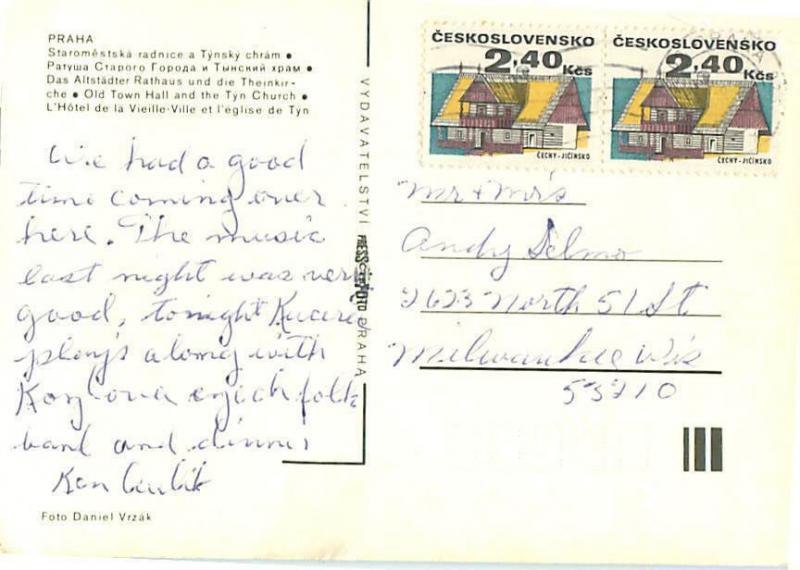 PRAHA
Staroměstská radnice a Týnský chrám •
Ратуша Старого Города и Тынский храм •
Das Altstädter Rathaus und die Theinkir-
che • Old Town Hall and the Týn Church •
L'Hôtel de la Vieille-Ville et l'église de Týn
We had a good
time coming over
here. The music
last night was very
good, tonight
plays along with
folk
band and dinner
Ken
Foto Daniel Vrzák
VYDAVATELSTVÍ PRESSFOTO PRAHA
ČESKOSLOVENSKO
2,40
Kčs
ČECHY-JIČÍNSKO
ČESKOSLOVENSKO
2,40
Kčs
ČECHY-JIČÍNSKO
Mr & Mrs
Andy Selmo
2623 North 51 St
Milwaukee Wis
53210